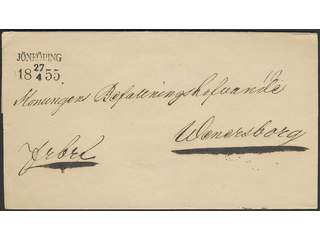 JÖNKÖPING
18 27/4 55.
Konungens Befallningshafvande
Wenersborg